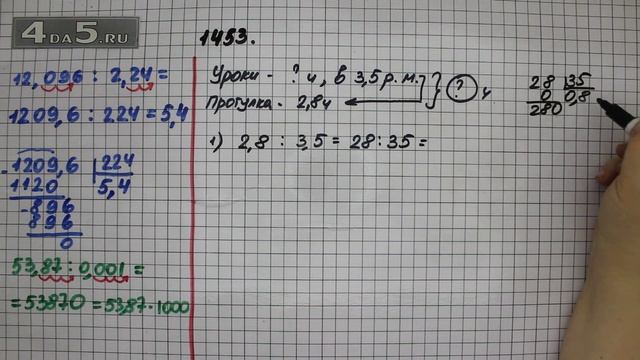 4DA5.RU
1453.
12,096 : 2,24 =
1209,6 : 224 = 5,4
- 1209,6 | 224
1120 5,4
- 896
896
0
53,87 : 0,001 =
= 53870 = 53,87 · 1000
Уроки - ? ч, в 3,5 р. м. } ? ч
Прогулка - 2,8 ч
1) 2,8 : 3,5 = 28 : 35 =
28 | 35
0 0,8
280